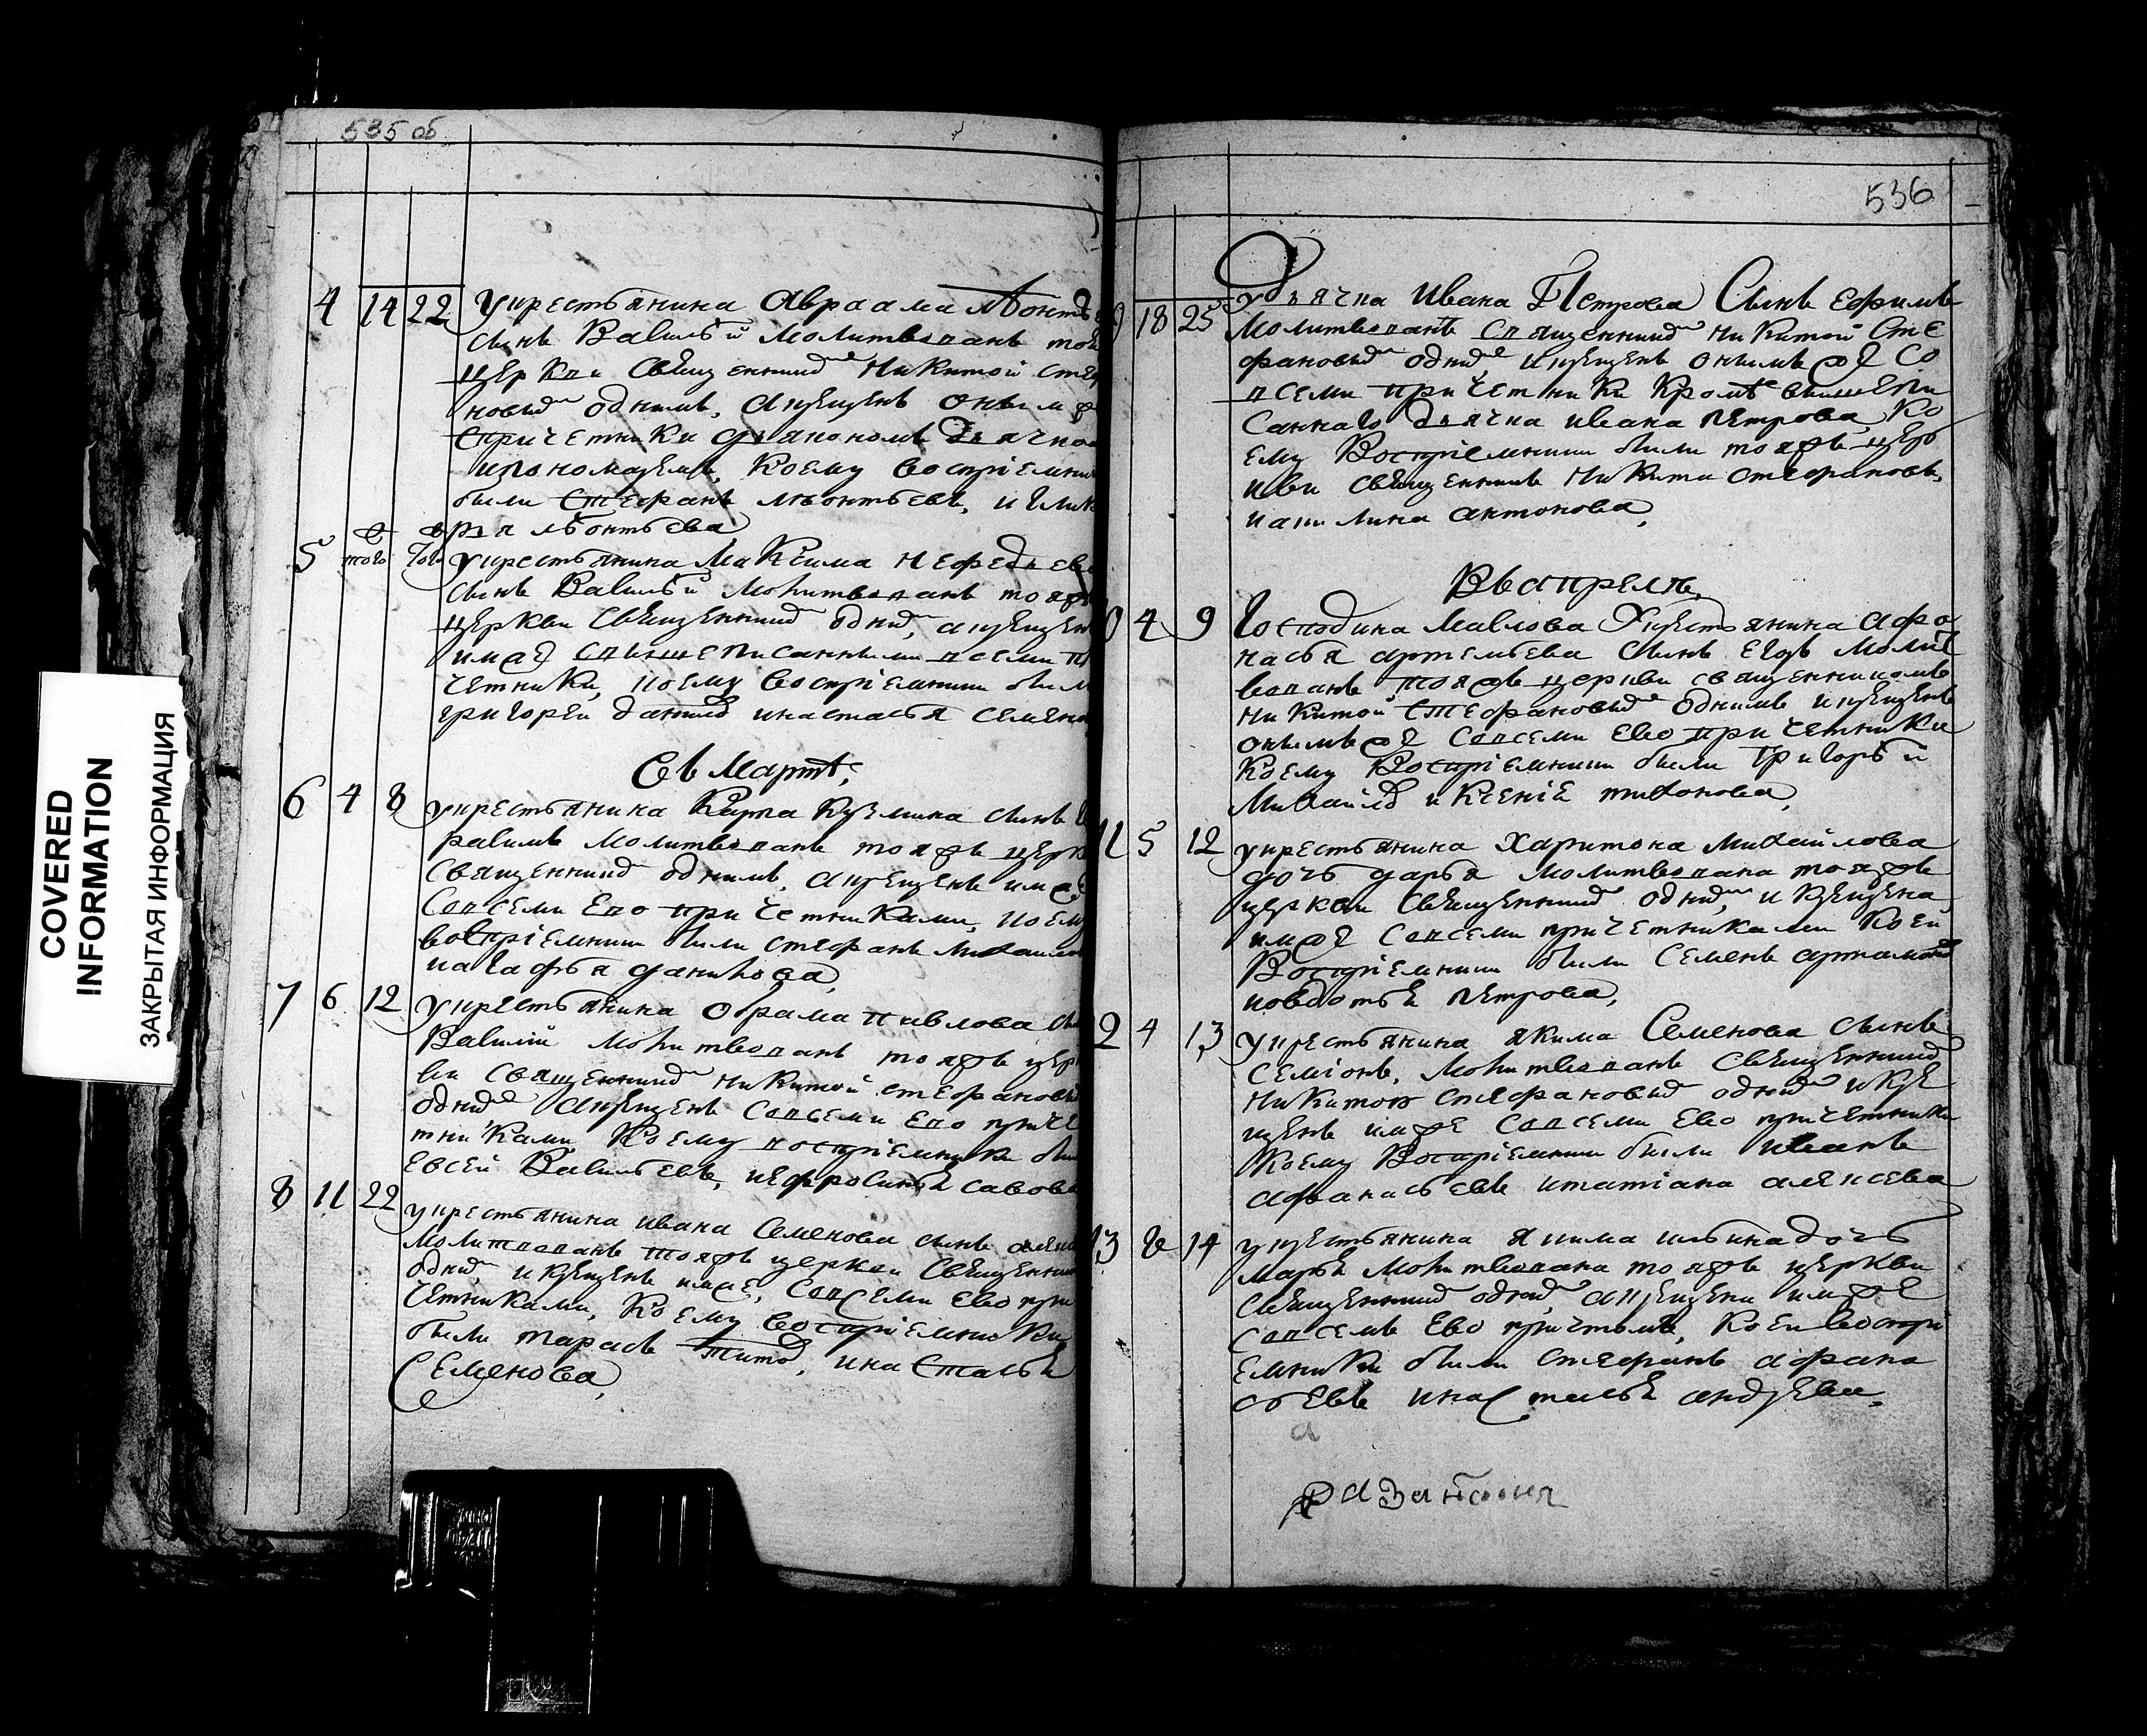 COVERED
INFORMATION
ЗАКРЫТАЯ ИНФОРМАЦИЯ
535 об
4 14 22 укрестьянина Авраама лѣонтье
сынъ Василѣй молитвованъ тоя
церкви свѣщенникомъ Никитой сте
новымъ однимъ, акрещенъ онымъ
спричетники дьякономъ дьячко
ипономаремъ, коему воспрiемни
были Стефанъ лѣонтьевъ, и
лѣонтьева
5 того того укрестьянина Максима Нефедьева
сынъ Василѣй молитвованъ тояже
церкви свѣщенникомъ однимъ, акрещен
имже свышеписанными всеми пр
четники, коему воспрiемники были
григореи данилов инастасья семено
Въ Мартѣ,
6 4 8 укрестьянина Карпа Кузмина сынъ
молитвованъ тояжъ церк
священникомъ однимъ, акрещенъ имже
совсеми ево причетниками, коему
воспрiемники были стефанъ михаило
иагафья данилова,
7 6 12 укрестьянина Обрама павлова сы
Василiй молитвованъ тояжъ цер
ви священникомъ никитой стефановым
однимъ акрещенъ совсеми ево приче
тниками коему воспрiемники были
евсей Васильевъ, иефросинья савова
8 11 22 укрестьянина ивана Семенова сынъ алек
молитвованъ тояжъ церкви свѣщенник
однимъ, икрещенъ имже, совсеми ево при
четниками, коему воспрiемники
были тарасъ титов, инастасья
Семенова,
536
9 18 25 У дьячка Ивана Петрова Сынъ ефимъ
молитвованъ священникомъ никитой Сте
фановымъ однимъ, икрещенъ онымже со
всеми причетники кромѣ вышепи
саннаго дьячка ивана петрова, ко
ему воспрiемники были тояжъ цер
кви свѣщенникъ никита стефановъ,
иакилина антонова,
Въ апрелѣ,
10 4 9 Господина Маслова укрестьянина афо
насья артемьева сынъ егоръ молит
вованъ тояжъ церкви священникомъ
никитой стефановымъ однимъ икрещенъ
онымъже совсеми ево причетники
коему воспрiемники были Григорѣй
михайлов иксенiя тихонова,
11 5 12 укрестьянина харитона михайлова
дочь дарья молитвована тояжъ
церкви свѣщенникомъ однимъ, икрещена
имже совсеми причетниками коей
воспрiемники были семенъ артамонов
иовдотья петрова,
12 4 13 укрестьянина якима Семенова сынъ
семiонъ, молитвованъ свѣщенникомъ
никитою стефановымъ однимъ икре
щенъ имже совсеми ево причетники
коему воспрiемники были иванъ
афанасьевъ итатiана алексева
13 14 укрестьянина якима ильина дочь
марья молитвована тояжъ церкви
свѣщенникомъ однимъ, акрещена имже
совсемъ ево причтомъ, коеи воспрi
емники были стефанъ афана
сьевъ инастасья андрева.
а